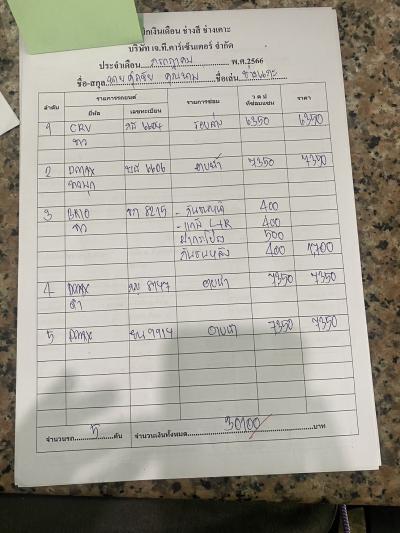 กเงินเดือน ช่างสี ช่างเคาะ
บริษัท เจ.ที.คาร์เซ็นเตอร์ จำกัด
ประจำเดือน กรกฎาคม พ.ศ.2566
ชื่อ-สกุล ชื่อเล่น
ลำดับ รายการรถยนต์ รายการซ่อม ว ค ป ที่ซ่อมเสร็จ ราคา
ยี่ห้อ เลขทะเบียน
1 CRV 6604 รอบคัน 6350 6350
ขาว
2 DMAX 6606 7350 7350
3 BRIO 8215 400
ขาว - แก้ม L+R 400
ฝากระโปรง 500
กันชนหลัง 400 1,700
4 DMAX 8147 7350 7350
ดำ
5 DMAX 9914 7350 7350
จำนวนรถ 5 คัน จำนวนเงินทั้งหมด 30100 บาท